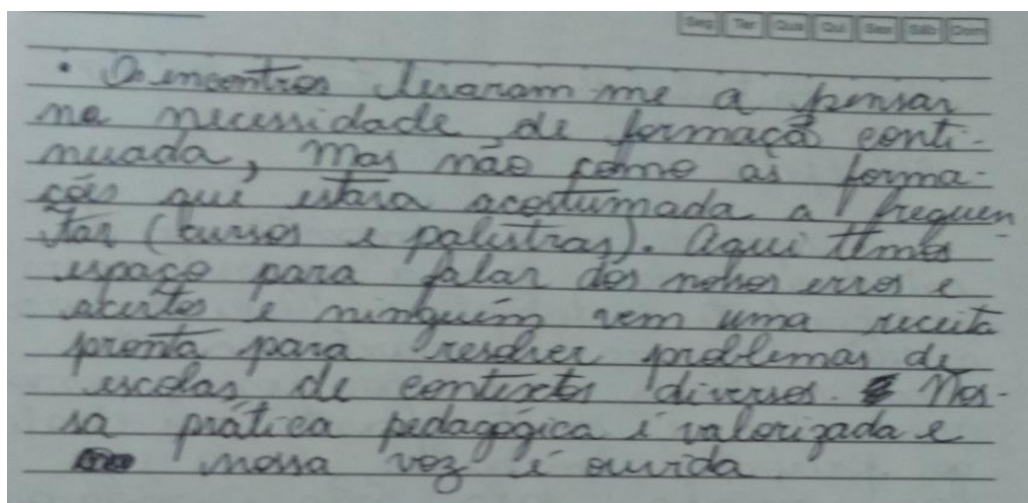 Seg Ter Qua Qui Sex Sáb Dom
• Os encontros levaram-me a pensar
na necessidade de formação conti-
nuada, mas não como as forma-
ções que estava acostumada a frequen-
tar (cursos e palestras). Aqui temos
espaço para falar dos nossos erros e
acertos e ninguém vem uma receita
pronta para resolver problemas de
escolas de contextos diversos. Nos-
sa prática pedagógica é valorizada e
nossa voz é ouvida